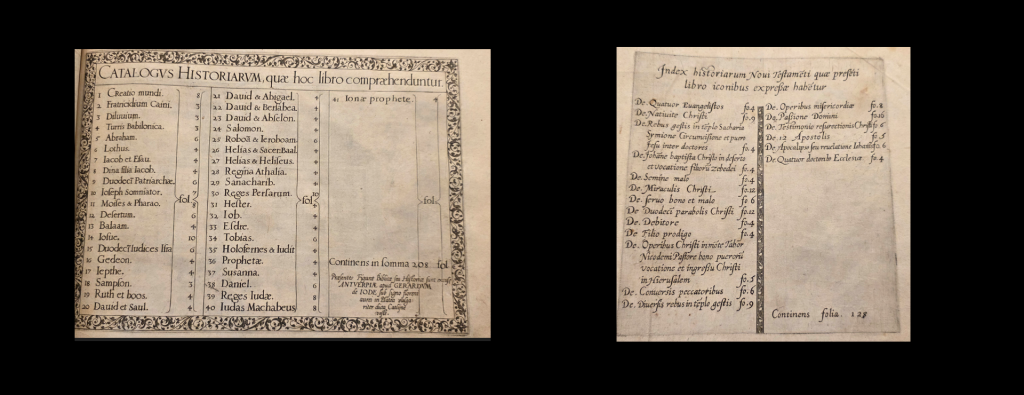 CATALOGVS HISTORIARVM, quæ hoc libro compræhenduntur.
1 Creatio mundi. 8
2 Fratricidium Caini. 3
3 Diluuium. 3
4 Turris Babilonica. 4
5 Abraham. 6
6 Lothus. 4
7 Iacob et Esau. 4
8 Dina filia Iacob. 4
9 Duodecī Patriarchæ. 6
10 Ioseph Somniator.
11 Moises & Pharao. 8
12 Desertum. 6
13 Balaam. 4
14 Iosue. 10
15 Duodecī Iudices
16 Gedeon. 4
17 Iepthe. 4
18 Sampson. 3
19 Ruth et boos. 4
20 Dauid et Saul. 4
fol
21 Dauid & Abigael. 4
22 Dauid & Bersabea. 4
23 Dauid & Abselon. 4
24 Salomon. 4
25 Roboā & Ieroboam. 6
26 Helias & Sacer.Baal. 4
27 Helias & Heliseus. 4
28 Regina Athalia. 4
29 Sanacharib. 4
30 Reges Persarum. 10
31 Hester. 4
32 Iob. 4
33 Esdre. 4
34 Tobias. 6
35 Holofernes & Iudit 8
36 Prophetæ. 4
37 Susanna. 4
38 Daniel. 6
39 Reges Iudæ. 8
40 Iudas Machabeus 8
fol
41 Ionæ prophete. 4
fol.
Continens in somma 208 fol
ANTVERPIÆ apud GERARDVM
de IODE
Index historiarum Noui Testamēti quæ presēti
libro iconibus expressæ habētur
De Quatuor Euangelistos fo.4
De Natiuite Christi fo.9
De Rebus gestis in tēplo Sacharia
Symione Circumcisione et puero
Iesu inter doctores fo.4
De Iohāne baptista Christo in deserto
et vocatione filiorū zebedei fo.4
De Semine malo fo.4
De Miraculis Christi fo.12
De seruo bono et malo fo 6
De Duodecī parabolis Christi fo.12
De Debitore fo.4
De Filio prodigo fo.4
De Operibus Christi in mōte Tabor
Nicodemi Pastore bono puerorū
vocatione et ingressu Christi
in Hierusalem fo.5
De Conuersis peccatoribus fo.6
De Diuersis rebus in tēplo gestis fo.9
De Operibus misericordiæ fo.8
De Passione Domini fo.16
De Testimonio resurectionis Christi fo.6
De 12 Apostolis fo.5
De Apocalipsi seu reuelatione fo.6
De Quatuor doctorib Ecclesiæ fo.4
Continens folia. 128